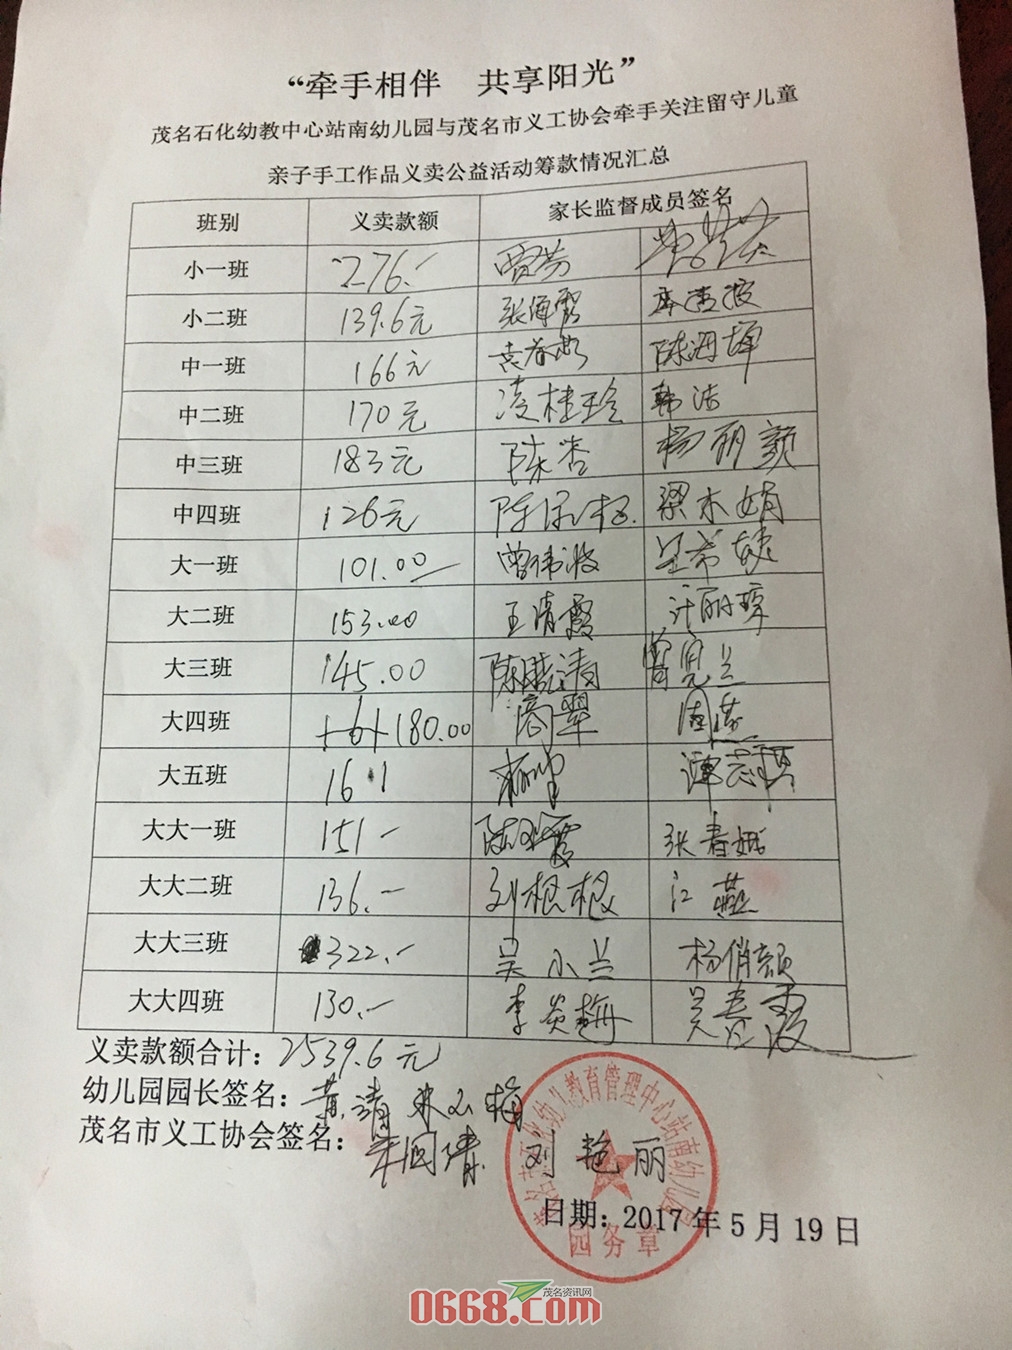 “牵手相伴　共享阳光”
茂名石化幼教中心站南幼儿园与茂名市义工协会牵手关注留守儿童
亲子手工作品义卖公益活动筹款情况汇总
班别 义卖款额 家长监督成员签名
小一班 276.-
小二班 139.6元
中一班 166元
中二班 170元 凌桂玲 韩洁
中三班 183元 陈杏 杨丽颜
中四班 126元 梁木娟
大一班 101.00 曾伟波
大二班 153.00 王清霞 许丽琼
大三班 145.00
大四班 180.00
大五班 161
大大一班 151- 张春娥
大大二班 136.- 刘根根 江燕
大大三班 322.- 吴小兰 杨俏颜
大大四班 130.- 李炎梅 吴春霞
义卖款额合计：2539.6元
幼儿园园长签名：黄清
茂名市义工协会签名： 刘艳丽
日期：2017年5月19日
园务章
茂名资讯网
0668.com